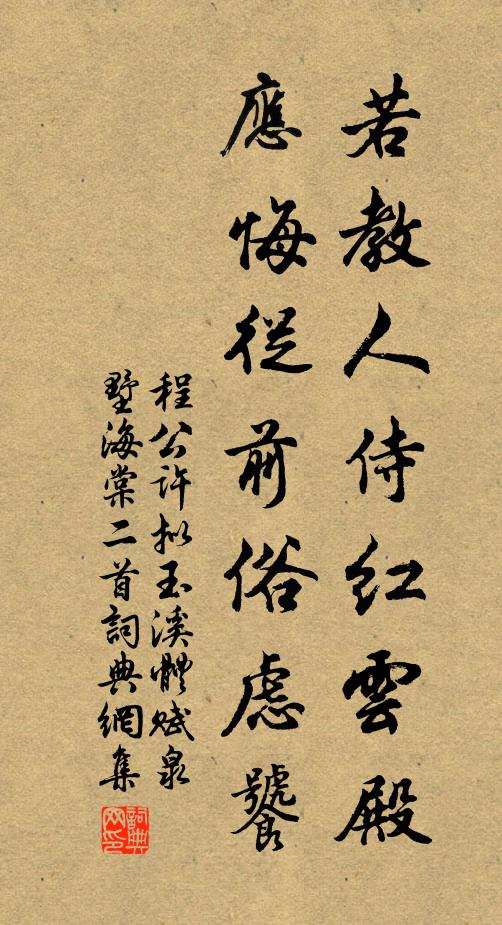 若教人侍紅雲殿
應悔從前俗慮饕
程公許擬玉溪體賦泉
墅海棠二首詞典網集
詞典网印